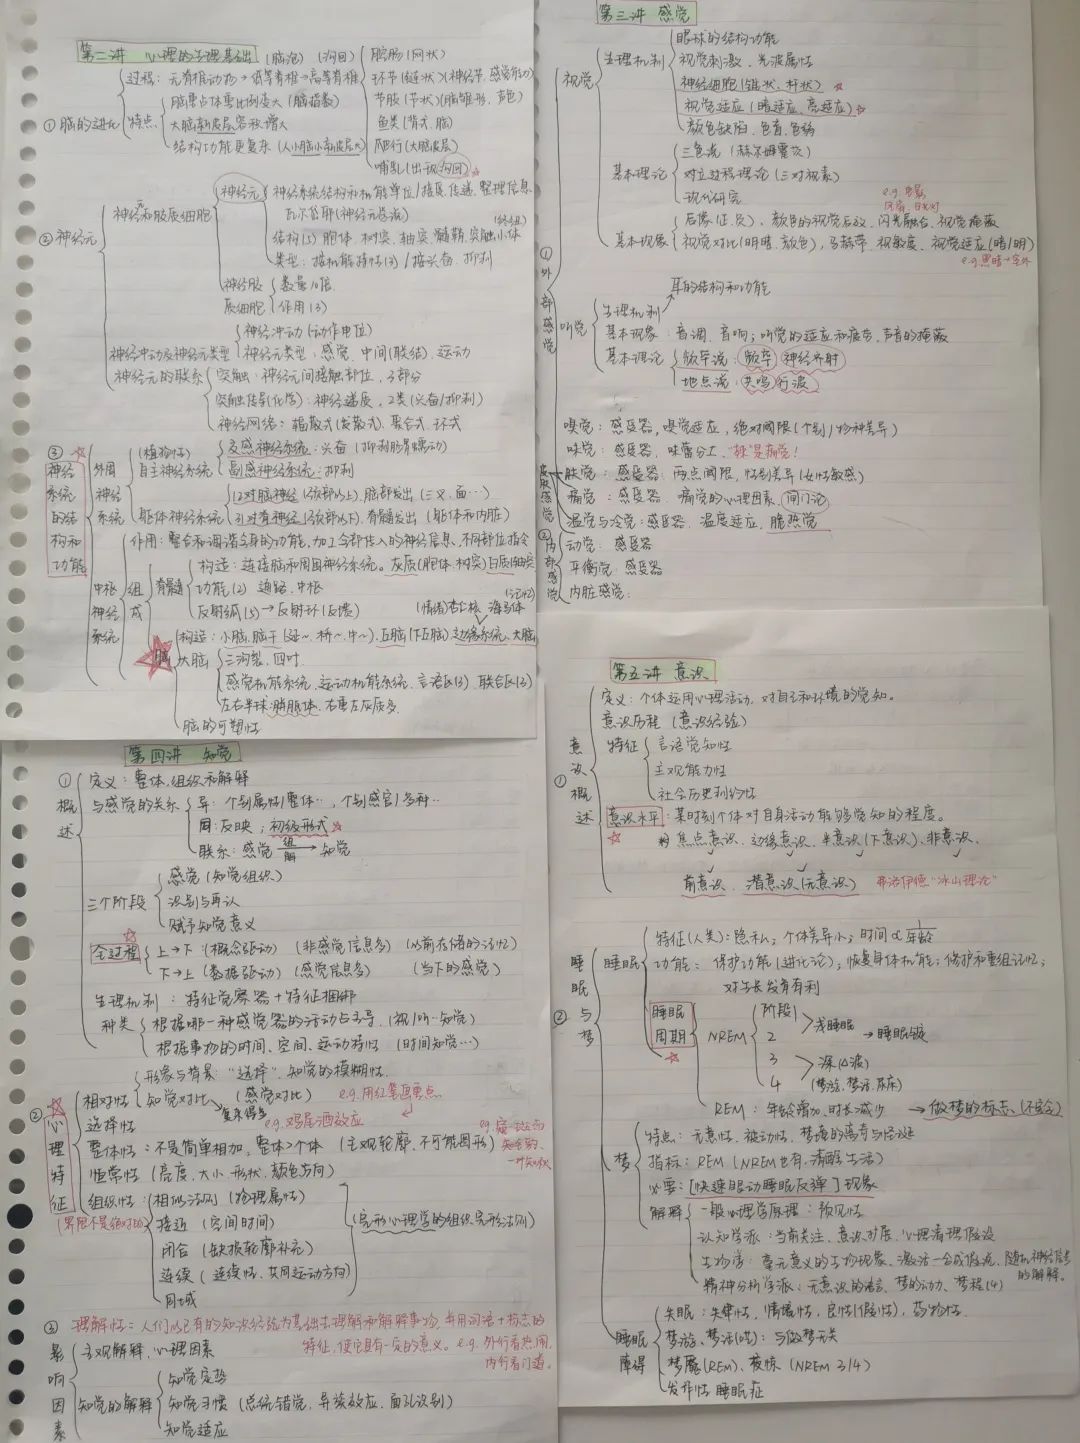 第二讲 心理的生理基础 (脑泡) (沟回)
① 脑的进化
过程: 无脊椎动物→低等脊椎→高等脊椎
腔肠 (网状)
环节 (链状) (神经节、感觉能力)
节肢 (节状) (脑雏形、声色)
鱼类 (背式、脑)
爬行 (大脑皮层)
哺乳 (出现沟回)
特点
脑重占体重比例变大 (脑指数)
大脑新皮层容积增大
结构功能更复杂 (人小脑小新皮层大)
② 神经元
神经元和胶质细胞
神经元
神经系统结构和机能单位/接受、传递、整理信息
瓦尔岱耶 (神经元总说)
结构(5) 胞体、树突、轴突、髓鞘、突触小体
类型: 按机能特性(3) / 按兴奋、抑制
神经胶质细胞
数量10倍
作用(3)
神经冲动及神经元类型
神经冲动 (动作电位)
神经元类型: 感觉、中间(联结)、运动
神经元的联系
突触: 神经元间接触部位, 3部分
突触传导(化学): 神经递质, 2类 (兴奋/抑制)
神经网络: 扩散式(发散式)、聚合式、环式
③ 神经系统的结构和功能
外周神经系统
(植物性) 自主神经系统
交感神经系统: 兴奋 (抑制肠胃蠕动)
副交感神经系统: 抑制
躯体神经系统
12对脑神经 (颈部以上), 脑部发出 (三叉、面…)
31对脊神经 (颈部以下), 脊髓发出 (躯体和内脏)
中枢神经系统
作用: 整合和调谐全身的功能, 加工全部传入的神经信息, 不同部位指令
组成
脊髓
构造: 连接脑和周围神经系统。灰质(胞体、树突) 白质(轴突)
功能(2) 通路、中枢
反射弧(5)→反射环 (反馈)
(情绪)杏仁核 海马体 (记忆)
脑
构造: 小脑、脑干 (延~、桥~、中~)、丘脑 (下丘脑)、边缘系统、大脑
大脑
三沟裂、四叶
感觉机能系统、运动机能系统、言语区(3)、联合区(3)
左右半球: 胼胝体、右重左灰质多
脑的可塑性
第三讲 感觉
① 外部感觉
视觉
生理机制
眼球的结构功能
视觉刺激、光波属性
神经细胞 (锥状、杆状)
视觉适应 (暗适应、亮适应)
颜色缺陷、色盲、色弱
基本理论
三色说 (赫尔姆霍次)
对立过程理论 (三对视素)
现代研究
基本现象
后像(正、负)、颜色的视觉后效、闪光融合、视觉掩蔽
视觉对比(明暗、颜色)、马赫带、视敏度、视觉适应(暗/明)
听觉
生理机制
耳的结构和功能
基本现象: 音调、音响; 听觉的适应和疲劳、声音的掩蔽
基本理论
频率说: 频率 神经齐射
地点说: 共鸣 行波
嗅觉: 感受器, 嗅觉适应, 绝对阈限 (个别/物种差异)
味觉: 感受器、味蕾分工、"辣"是痛觉!
皮肤感觉
肤觉: 感受器、两点阈限、性别差异 (女性敏感)
痛觉: 感受器、痛觉的心理因素, 闸门论
温觉与冷觉: 感受器、温度适应, 脆热觉
② 内部感觉
动觉: 感受器
平衡觉: 感受器
内脏感觉:
第四讲 知觉
① 概述
定义: 整体、组织和解释
与感觉的关系
异: 个别属性/整体…, 个别感官/多种…
同: 反映; 初级形式
联系: 感觉 组 解→ 知觉
三个阶段
感觉 (知觉组织)
识别与再认
赋予知觉意义
全过程
上→下 (概念驱动) (非感觉信息多) (以前存储的记忆)
下→上 (数据驱动) (感觉信息多) (当下的感觉)
生理机制: 特征觉察器+特征捆绑
种类
根据哪一种感觉器的活动占主导 (视/听…知觉)
根据事物的时间、空间、运动特性 (时间知觉…)
② 心理特征
相对性
形象与背景 "选择"、知觉的模糊性
知觉对比 (感觉对比)
复杂得多
e.g. 用红笔画重点
选择性
e.g. 鸡尾酒效应
整体性: 不是简单相加, 整体>个体 (主观轮廓、不可能图形)
恒常性 (亮度、大小、形状、颜色方向)
组织性
(界限不是绝对的)
相似法则 (物理属性)
接近 (空间时间)
闭合 (缺损轮廓补充)
连续 (连续性、共同运动方向)
同域
(完形心理学的组织完形法则)
理解性: 人们以已有的知识经验为基础去理解和解释事物, 并用词语+标志的
特征, 使它具有一定的意义。e.g. 外行看热闹,
内行看门道。
③ 影响因素
主观解释、心理因素
知觉的解释
知觉定势
知觉习惯 (总统错觉、异族效应、面孔识别)
知觉适应
第五讲 意识
① 意识概述
定义: 个体运用心理活动, 对自己和环境的觉知。
意识历程 (意识经验)
特征
言语觉知性
主观能力性
社会历史制约性
意识水平: 某时刻个体对自身活动能够觉知的程度。
焦点意识、边缘意识、半意识(下意识)、非意识、
前意识、潜意识(无意识) 弗洛伊德"冰山理论"
② 睡眠与梦
睡眠
特征(人类): 隐私; 个体差异小; 时间∝1/年龄
功能: 保护功能(进化论); 恢复身体机能; 保护和重组记忆;
对生长发育有利
睡眠周期
NREM
阶段1
2
>浅睡眠 →睡眠锭
3
4
>深(δ波)
(梦游、梦话、尿床)
REM: 年龄增加, 时长减少 →做梦的标志 (不完全)
梦
特点: 无意性、被动性、梦境的离奇与怪诞
指标: REM (NREM也有、清醒生活)
必要: [快速眼动睡眠反弹] 现象
解释
一般心理学原理: 预见性
认知学派: 当前关注、意识对应、心理清理假设
生物学: 毫无意义的生物现象、激活—合成假说、随机神经信号的解释。
精神分析学派: 无意识的语言、梦的动力、梦程(4)
睡眠障碍
失眠: 失律性、情境性、良性(假性)、药物性
梦游、梦话(呓): 与做梦无关
梦魇(REM)、夜惊 (NREM 3/4)
发作性睡眠症